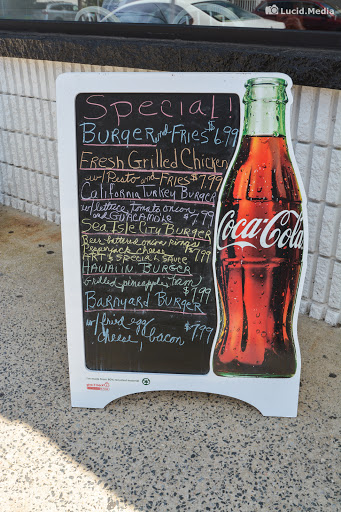 Lucid.Media
Special!
Burger and Fries $6.99
Fresh Grilled Chicken
w/ Pesto and Fries $7.99
California Turkey Burger
w/ lettuce tomato onion
and GUACAMOLE $7.99
Sea Isle City Burger
Beer battered onion rings
Pepperjack cheese $7.99
ART'S SPECIAL SAUCE
HAUAIIN BURGER
Grilled pineapple, ham $7.99
Barnyard Burger
w/ fried egg $7.99
cheese, bacon
Coca-Cola